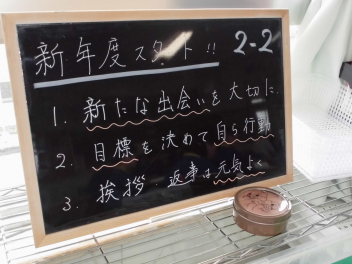 新年度スタート!! 2-2
1. 新たな出会いを大切に
2. 目標を決めて自ら行動
3. 挨拶・返事は元気よく